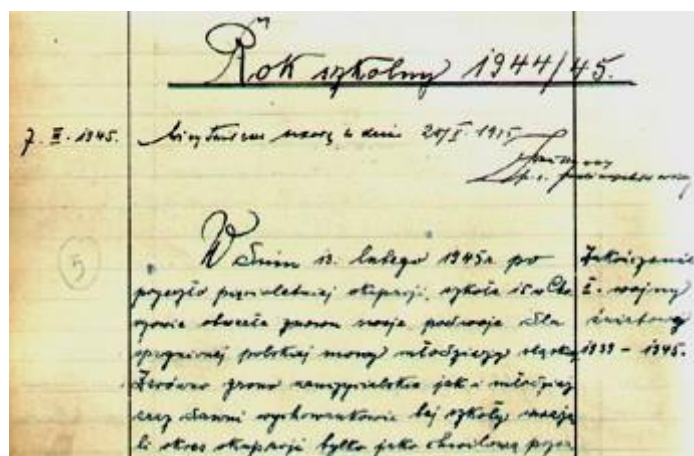 Rok szkolny 1944/45.
7. II. 1945.
w dniu
5
W dniu 13. lutego 1945r po
przeszło pięcioletniej okupacji, szkoła 15 w Cho
rzowie otwarła znowu swoje podwoje dla
spragnionej polskiej mowy młodzieży śląskiej.
Zarówno grono nauczycielskie jak i młodzież
czy dawni wychowankowie tej szkoły
li okres okupacji tylko jako chwilową
Zakończenie
II. wojny
światowej
1939 - 1945.